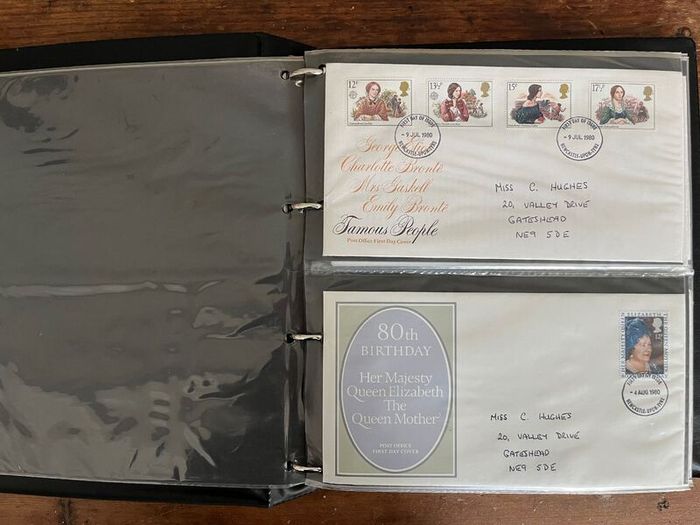 12p
13½p
15p
17½p
FIRST DAY OF ISSUE
- 9 JUL 1980
NEWCASTLE-UPON-TYNE
FIRST DAY OF ISSUE
- 9 JUL 1980
NEWCASTLE-UPON-TYNE
George Eliot
Charlotte Brontë
Mrs Gaskell
Emily Brontë
Famous People
Post Office First Day Cover
MISS C. HUGHES
20, VALLEY DRIVE
GATESHEAD
NE9 5DE
80th
BIRTHDAY
Her Majesty
Queen Elizabeth
The
Queen Mother
POST OFFICE
FIRST DAY COVER
12p
FIRST DAY OF ISSUE
- 4 AUG 1980
NEWCASTLE-UPON-TYNE
MISS C. HUGHES
20, VALLEY DRIVE
GATESHEAD
NE9 5DE